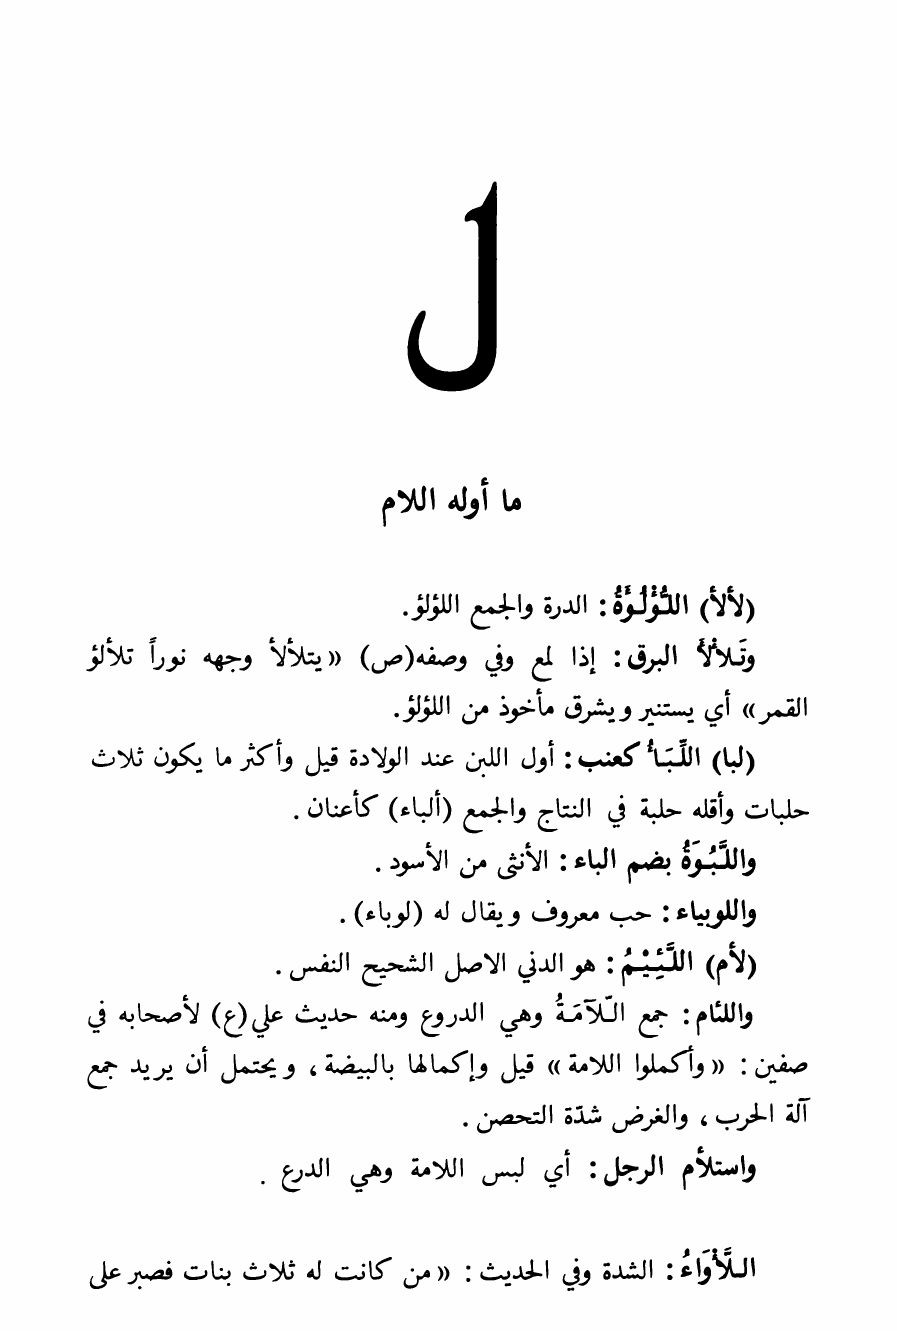 ل
ما أوله اللام
(لألأ) اللُّؤْلُؤَةُ : الدرة والجمع اللؤلؤ.
وتَلألأَ البرق : إذا لمع وفي وصفه(ص) «يتلألأ وجهه نوراً تلألؤ
القمر» أي يستنير ويشرق مأخوذ من اللؤلؤ.
(لبا) اللِّبَأُ كعنب : أول اللبن عند الولادة قيل وأكثر ما يكون ثلاث
حلبات وأقله حلبة في النتاج والجمع (ألباء) كأعنان .
واللَّبُوَةُ بضم الباء : الأنثى من الأسود .
واللوبياء : حب معروف ويقال له (لوباء) .
(لأم) اللَّئِيْمُ : هو الدني الاصل الشحيح النفس .
واللئام : جمع اللّآمَةُ وهي الدروع ومنه حديث علي(ع) لأصحابه في
صفين : «وأكملوا اللامة» قيل وإكمالها بالبيضة ، ويحتمل أن يريد جمع
آلة الحرب ، والغرض شدّة التحصن .
واستلأم الرجل : أي لبس اللامة وهي الدرع .
اللَّأْوَاءُ : الشدة وفي الحديث : «من كانت له ثلاث بنات فصبر على